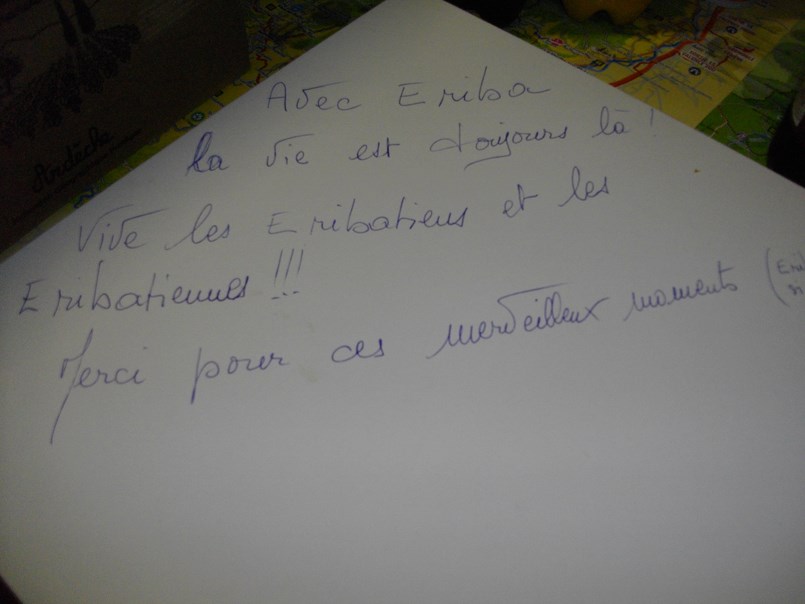 Ardèche
Avec Eriba
la vie est toujours là !
Vive les Eribatiens et les
Eribatiennes !!!
Merci pour ces merveilleux moments